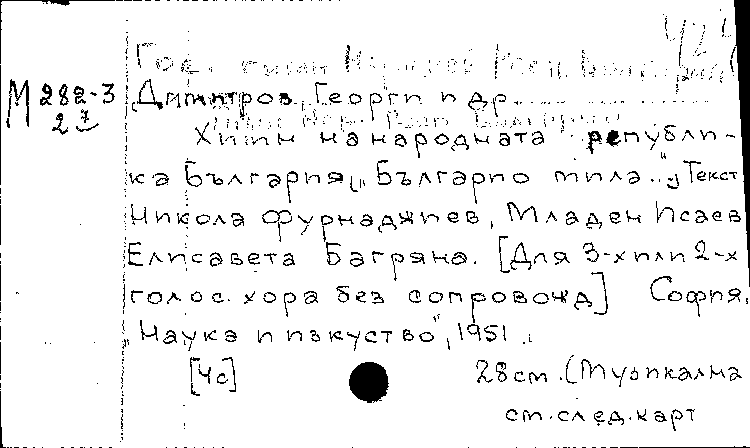 424
Гос. гимн Народной Респ. Болгарии
М 282-3
27
Димитров, Георги и др.
Химн на народната републи-
ка България („Българио мила..“) Текст
Никола Фурнаджиев, Младен Исаев
Елисавета Багряна. [Для 3-х или 2-х
голос. хора без сопровожд] София,
„Наука и изкуство“, 1951.
[4с] 28 см. (Музикална
см. след. карт